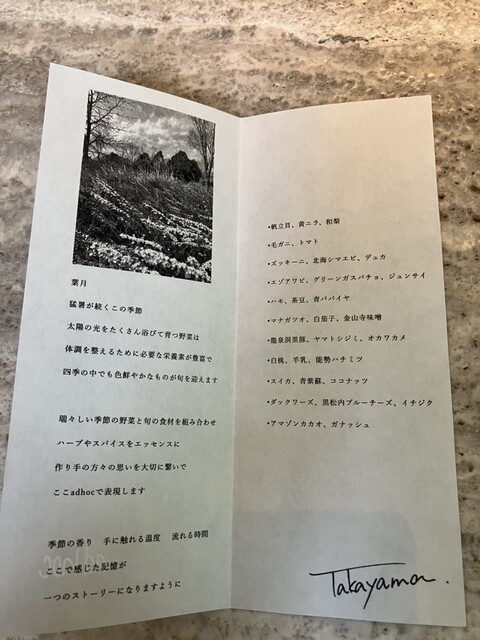 葉月
猛暑が続くこの季節
太陽の光をたくさん浴びて育つ野菜は
体調を整えるために必要な栄養素が豊富で
四季の中でも色鮮やかなものが旬を迎えます
瑞々しい季節の野菜と旬の食材を組み合わせ
ハーブやスパイスをエッセンスに
作り手の方々の思いを大切に繋いで
ここadhocで表現します
季節の香り 手に触れる温度 流れる時間
ここで感じた記憶が
一つのストーリーになりますように
・帆立貝、黄ニラ、和梨
・毛ガニ、トマト
・ズッキーニ、北海シマエビ、デュカ
・エゾアワビ、グリーンガスパチョ、ジュンサイ
・ハモ、茶豆、青パパイヤ
・マナガツオ、白茄子、金山寺味噌
・龍泉洞黒豚、ヤマトシジミ、オカワカメ
・白桃、羊乳、能勢ハチミツ
・スイカ、青紫蘇、ココナッツ
・ダックワーズ、黒松内ブルーチーズ、イチジク
・アマゾンカカオ、ガナッシュ
Takayama.